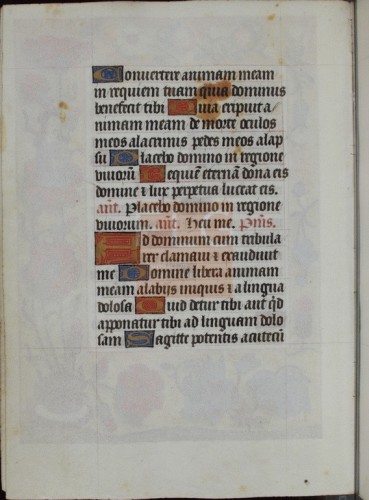 Convertere animam meam
in requiem tuam quia dominus
benefecit tibi Quia eripuit a/
nimam meam de morte oculos
meos alacrimis pedes meos alap
su Placebo domino in regione
viuorū Requiem eternā dona eis
domine & lux perpetua luceat eis.
añt. Placebo domino in regione
viuorum. añt. Heu me. Pmꝰ.
Ad dominum cum tribula
rer clamaui & exaudiuit
me Domine libera animam
meam alabijs iniquis & a lingua
dolosa Quid detur tibi aut qd
apponatur tibi ad linguam dolo
sam Sagitte potentis acutecū